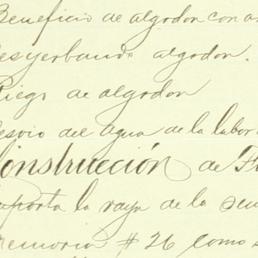 Beneficio de algodon con
Desyerbando algodon.
Riego de algodon
del agua de la labor
Construcción de
Importa la raya de la
Memoria # 26 como